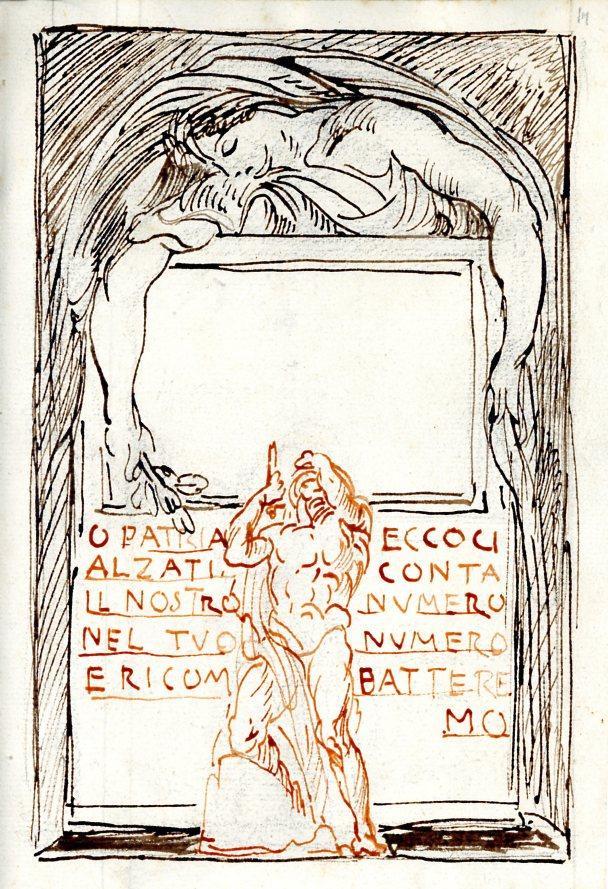 O PATRIA ECCOCI
ALZATI, CONTA
IL NOSTRO NVMERO
NEL TVO NVMERO
E RICOM BATTERE
MO